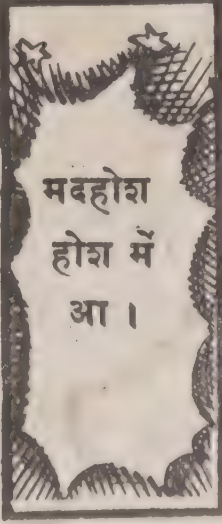 मदहोश
होश में
आ ।